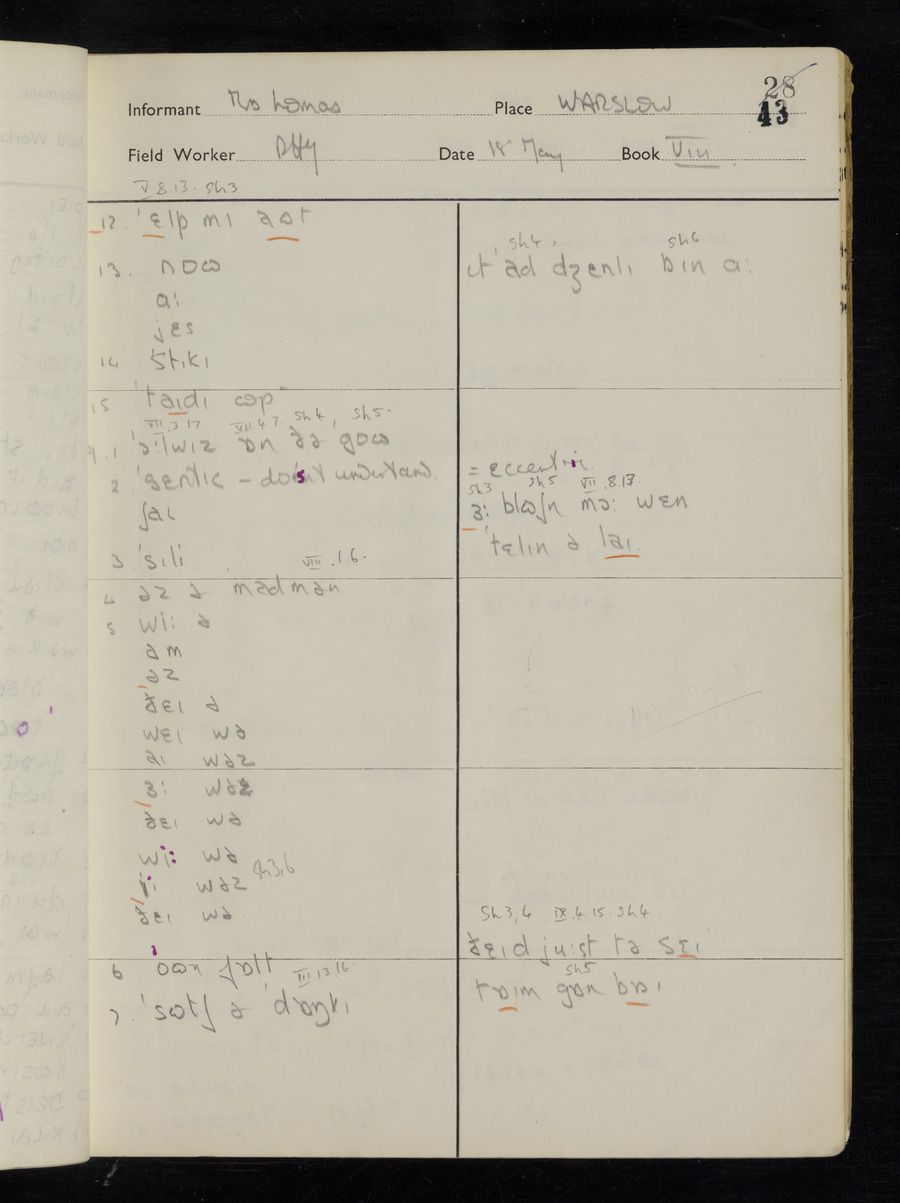 28
43
Informant Mrs Lomas Place WARSLOW
Field Worker Date 18 May Book VIII
V 8.13. Sh3
12. ˈɛlp mɪ aʊt
13. nɒʊ
a:
jɛs
14 stɪkɪ
15 ˈtaɪdɪ ʊp
VII.3.17 VII.4.7. Sh4, Sh5.
9.1 ɔ:lwɪz ɒn ðə gɒʊ
2 - doesn't understand.
ʃaɪ
3 ˈsɪlɪ VIII.1.6.
4 əz ə madmən
5 wi: ə
am
əz
ðɛɪ ə
wɛɪ wə
aɪ wəz
ɜ: wəz
ðɛɪ wə
wi: wə
i: wəz Sh3,6
ðɛɪ wə
6 ˈɒʊn fɒlt III.13.16
7. ˈsʊtʃ ə ˈdɒŋkɪ
Sh4. Sh6
ɪt ad dʒɛnlɪ bɪn a:
= eccentric
Sh3 Sh5 VII.8.17
ɜ: blʊʃn mɔ: wɛn
ˈtɛlɪn ə laɪ
Sh3,4 IX.4.15. Sh4
ðɛɪd ju:st tə sɛɪ
Sh5
tɒɪm gɒn bɒɪ